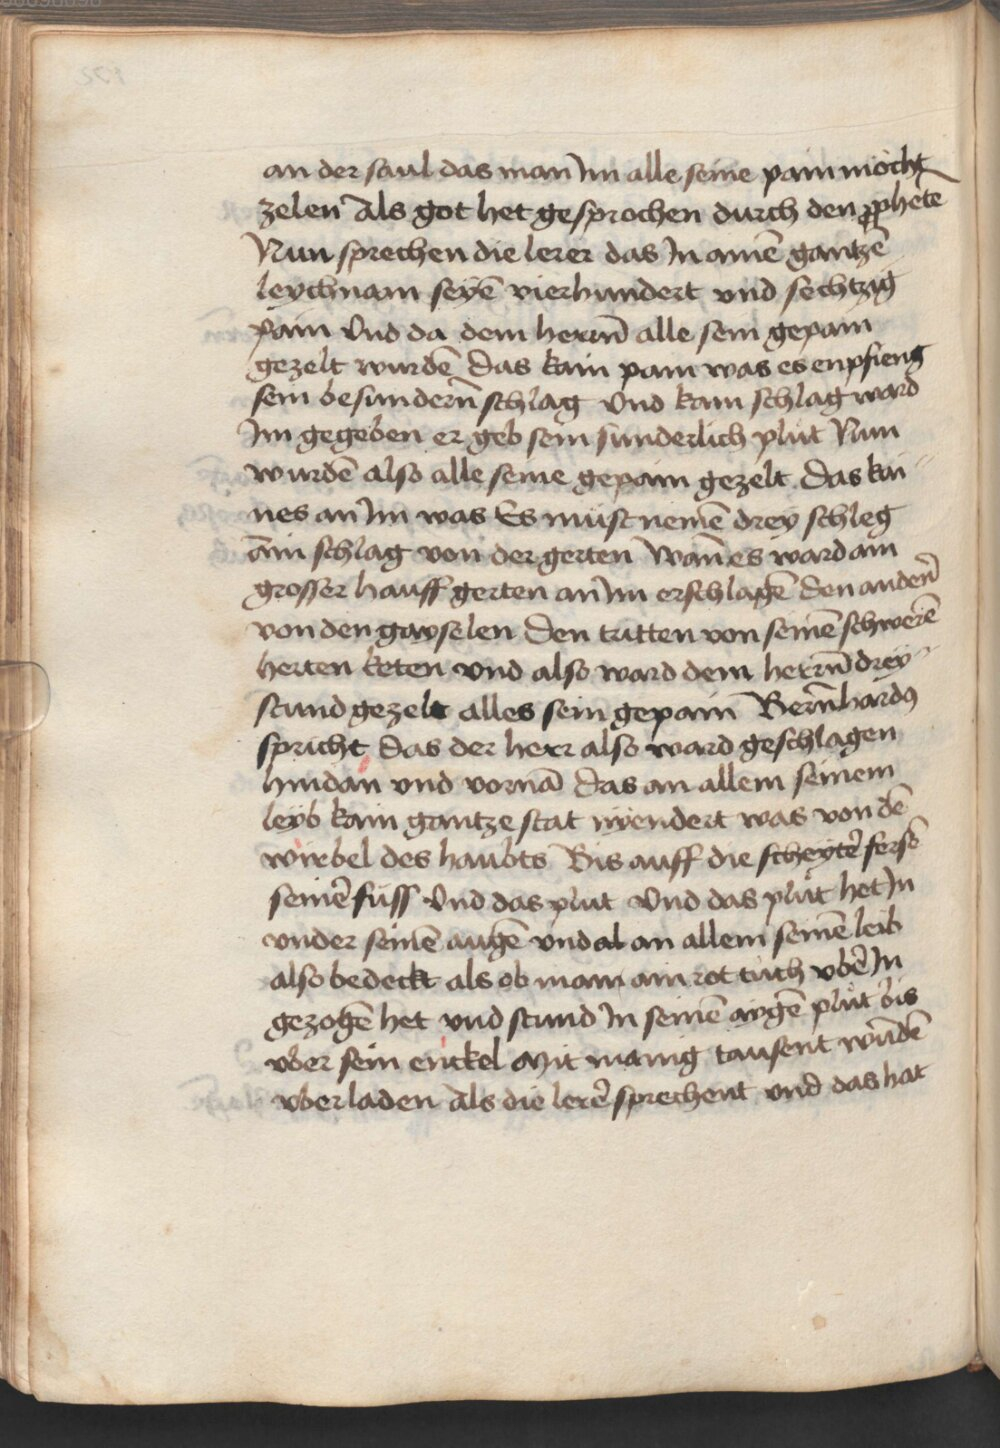 an der saul das man Im alle seine pain möcht
zelen Als got het gesprochen durch den prophetē
Nun sprechen die lerer das In ainē gantzē
leychnam seyē vierhundert vnd sechtzig
pain Vnd da dem herrn̄ alle sein gepain
gezelt wurdē Das kain pain was es enpfieng
sein besundern̄ schlag Vnd kain schlag ward
Im gegeben er geb sein sunderlich plut Nun
wurdē also alle seine gepain gezelt Das kai
nes an Im was Es must nemē drey schleg
ain schlag von der gerten Wan̄ es ward ain
grosser hauff gerten an Im erschlagē Den andern̄
von den gayselen Den tritten von seinē schwerē
herten keten Vnd also ward dem herrn̄ drey
stund gezelt alles sein gepain Bern̄hardꝰ
spricht Das der herr also ward geschlagen
hindan vnd vornā Das an allem seinem
leyb kain gantze stat nyendert was von dē
wirbel des haubts Bis auff die scheyter̄ fersē
seiner̄ füss Vnd das plut Vnd das plůt het In
vnder seinē augē vnd al an allem seinē leib
also bedeckt als ob mam ain rot tuch vber̄ In
gezogē het vnd stund In seinē aygē plůt bis
vber sein enckel Mit manig tausent wūdē
vberladen Als die lerer̄ sprechent vnd das hat